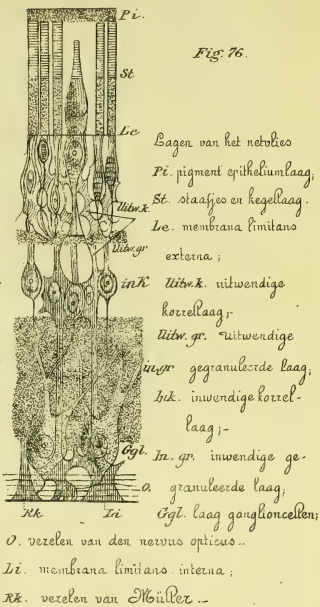 Pi.
Fig. 76.
St
Le
Lagen van het netvlies
Pi. pigment epitheliumlaag;
St. staafjes en kegellaag.
Uitw.k.
Le. membrana limitans
externa;
Uitw.gr
in K
Uitw.k. uitwendige
korrellaag;-
Uitw. gr. uitwendige
in.gr
gegranuleerde laag;
Ink. inwendige korrel-
laag;-
Ggl.
In. gr. inwendige ge-
o.
granuleerde laag;
Rk
Li
Ggl. laag ganglioncellen;
O. vezelen van den nervus opticus..
Li. membrana limitans interna;
Rk. vezelen van Müller.-